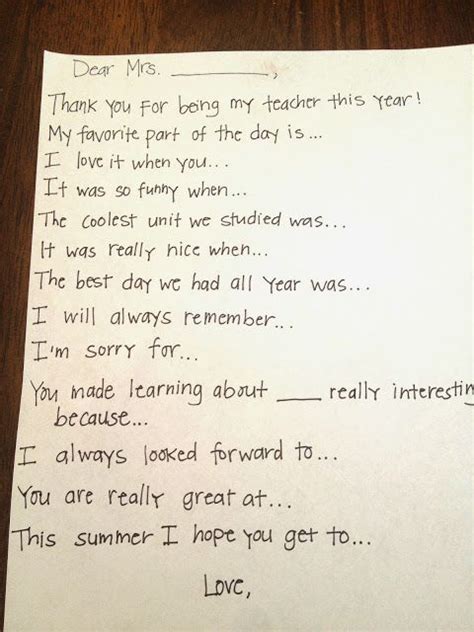 Dear Mrs. __________,
Thank you for being my teacher this year!
My favorite part of the day is...
I love it when you...
It was so funny when...
The coolest unit we studied was...
It was really nice when...
The best day we had all year was...
I will always remember...
I'm sorry for...
You made learning about ____ really interesting
because...
I always looked forward to...
You are really great at...
This summer I hope you get to...
Love,